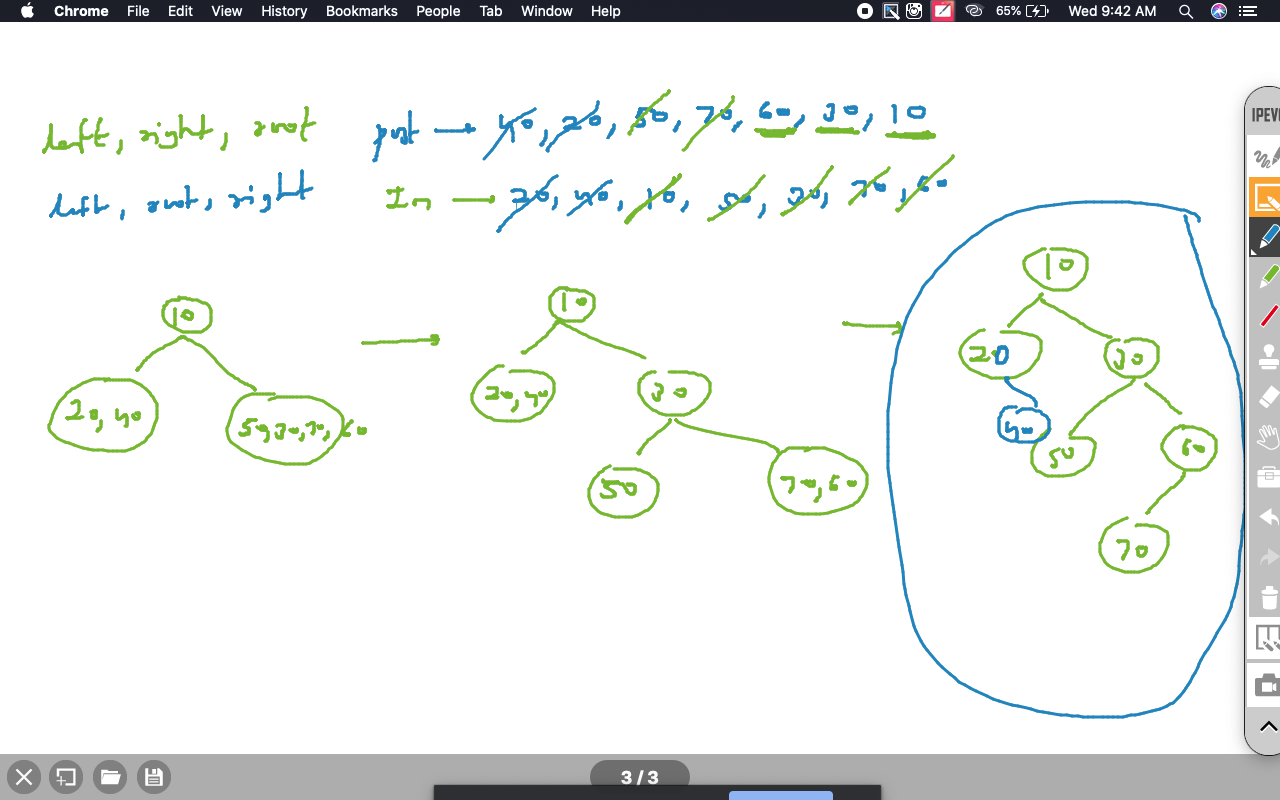 Chrome File Edit View History Bookmarks People Tab Window Help 65% Wed 9:42 AM
IPEV
left, right, root post → 40, 20, 50, 70, 60, 30, 10
left, root, right In → 20, 40, 10, 50, 30, 70, 60
10
20, 40
50,30,70,60
10
20,40
30
50
70,60
10
20
30
40
50
60
70
3/3